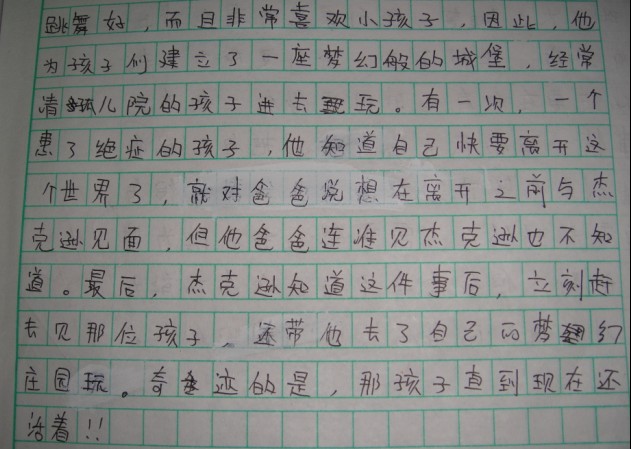 跳舞好，而且非常喜欢小孩子，因此，他
为孩子们建立了一座梦幻般的城堡，经常
请孤儿院的孩子进去玩。有一次，一个
患了绝症的孩子，他知道自己快要离开这
个世界了，就对爸爸说想在离开之前与杰
克逊见面，但他爸爸连谁见杰克逊也不知
道。最后，杰克逊知道这件事后，立刻赶
去见那位孩子，还带他去了自己的梦幻
庄园玩。奇迹的是，那孩子直到现在还
活着！！